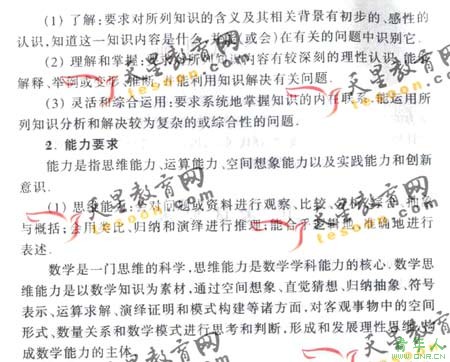 (1) 了解:要求对所列知识的含义及其相关背景有初步的、感性的
认识,知道这一知识内容是什么,并能(或会)在有关的问题中识别它.
(2) 理解和掌握:要求对所列知识内容有较深刻的理性认识,能够
解释、举例或变形、推断,并能利用知识解决有关问题.
(3) 灵活和综合运用:要求系统地掌握知识的内在联系,能运用所
列知识分析和解决较为复杂的或综合性的问题.
2. 能力要求
能力是指思维能力、运算能力、空间想象能力以及实践能力和创新
意识.
(1) 思维能力:会对问题或资料进行观察、比较、分析、综合、抽象
与概括;会用类比、归纳和演绎进行推理;能合乎逻辑地、准确地进行
表述.
数学是一门思维的科学,思维能力是数学学科能力的核心.数学思
维能力是以数学知识为素材,通过空间想象、直觉猜想、归纳抽象、符号
表示、运算求解、演绎证明和模式构建等诸方面,对客观事物中的空间
形式、数量关系和数学模式进行思考和判断,形成和发展理性思维,构
成数学能力的主体.
天星教育网
tesoon.com
天星教育网
tesoon.com
天星教育网
tesoon.com
天星教育网
tesoon.com
嘉华人
WWW.CNR.CN